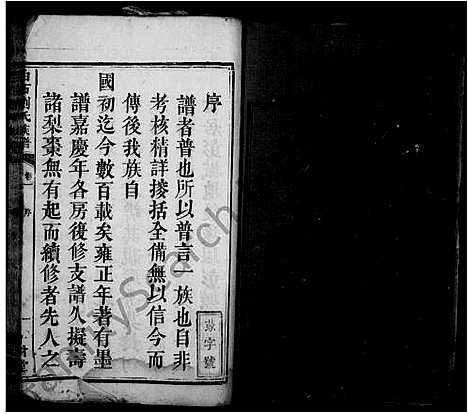 序
譜者普也所以普言一族也自非
考核精詳搜括全備無以信今而
傳後我族自
國初迄今數百載矣雍正年著有墨
譜嘉慶年各房後修支譜久擬壽
諸梨棗無有起而續修者先人之
字號
氏族譜
卷
序
一